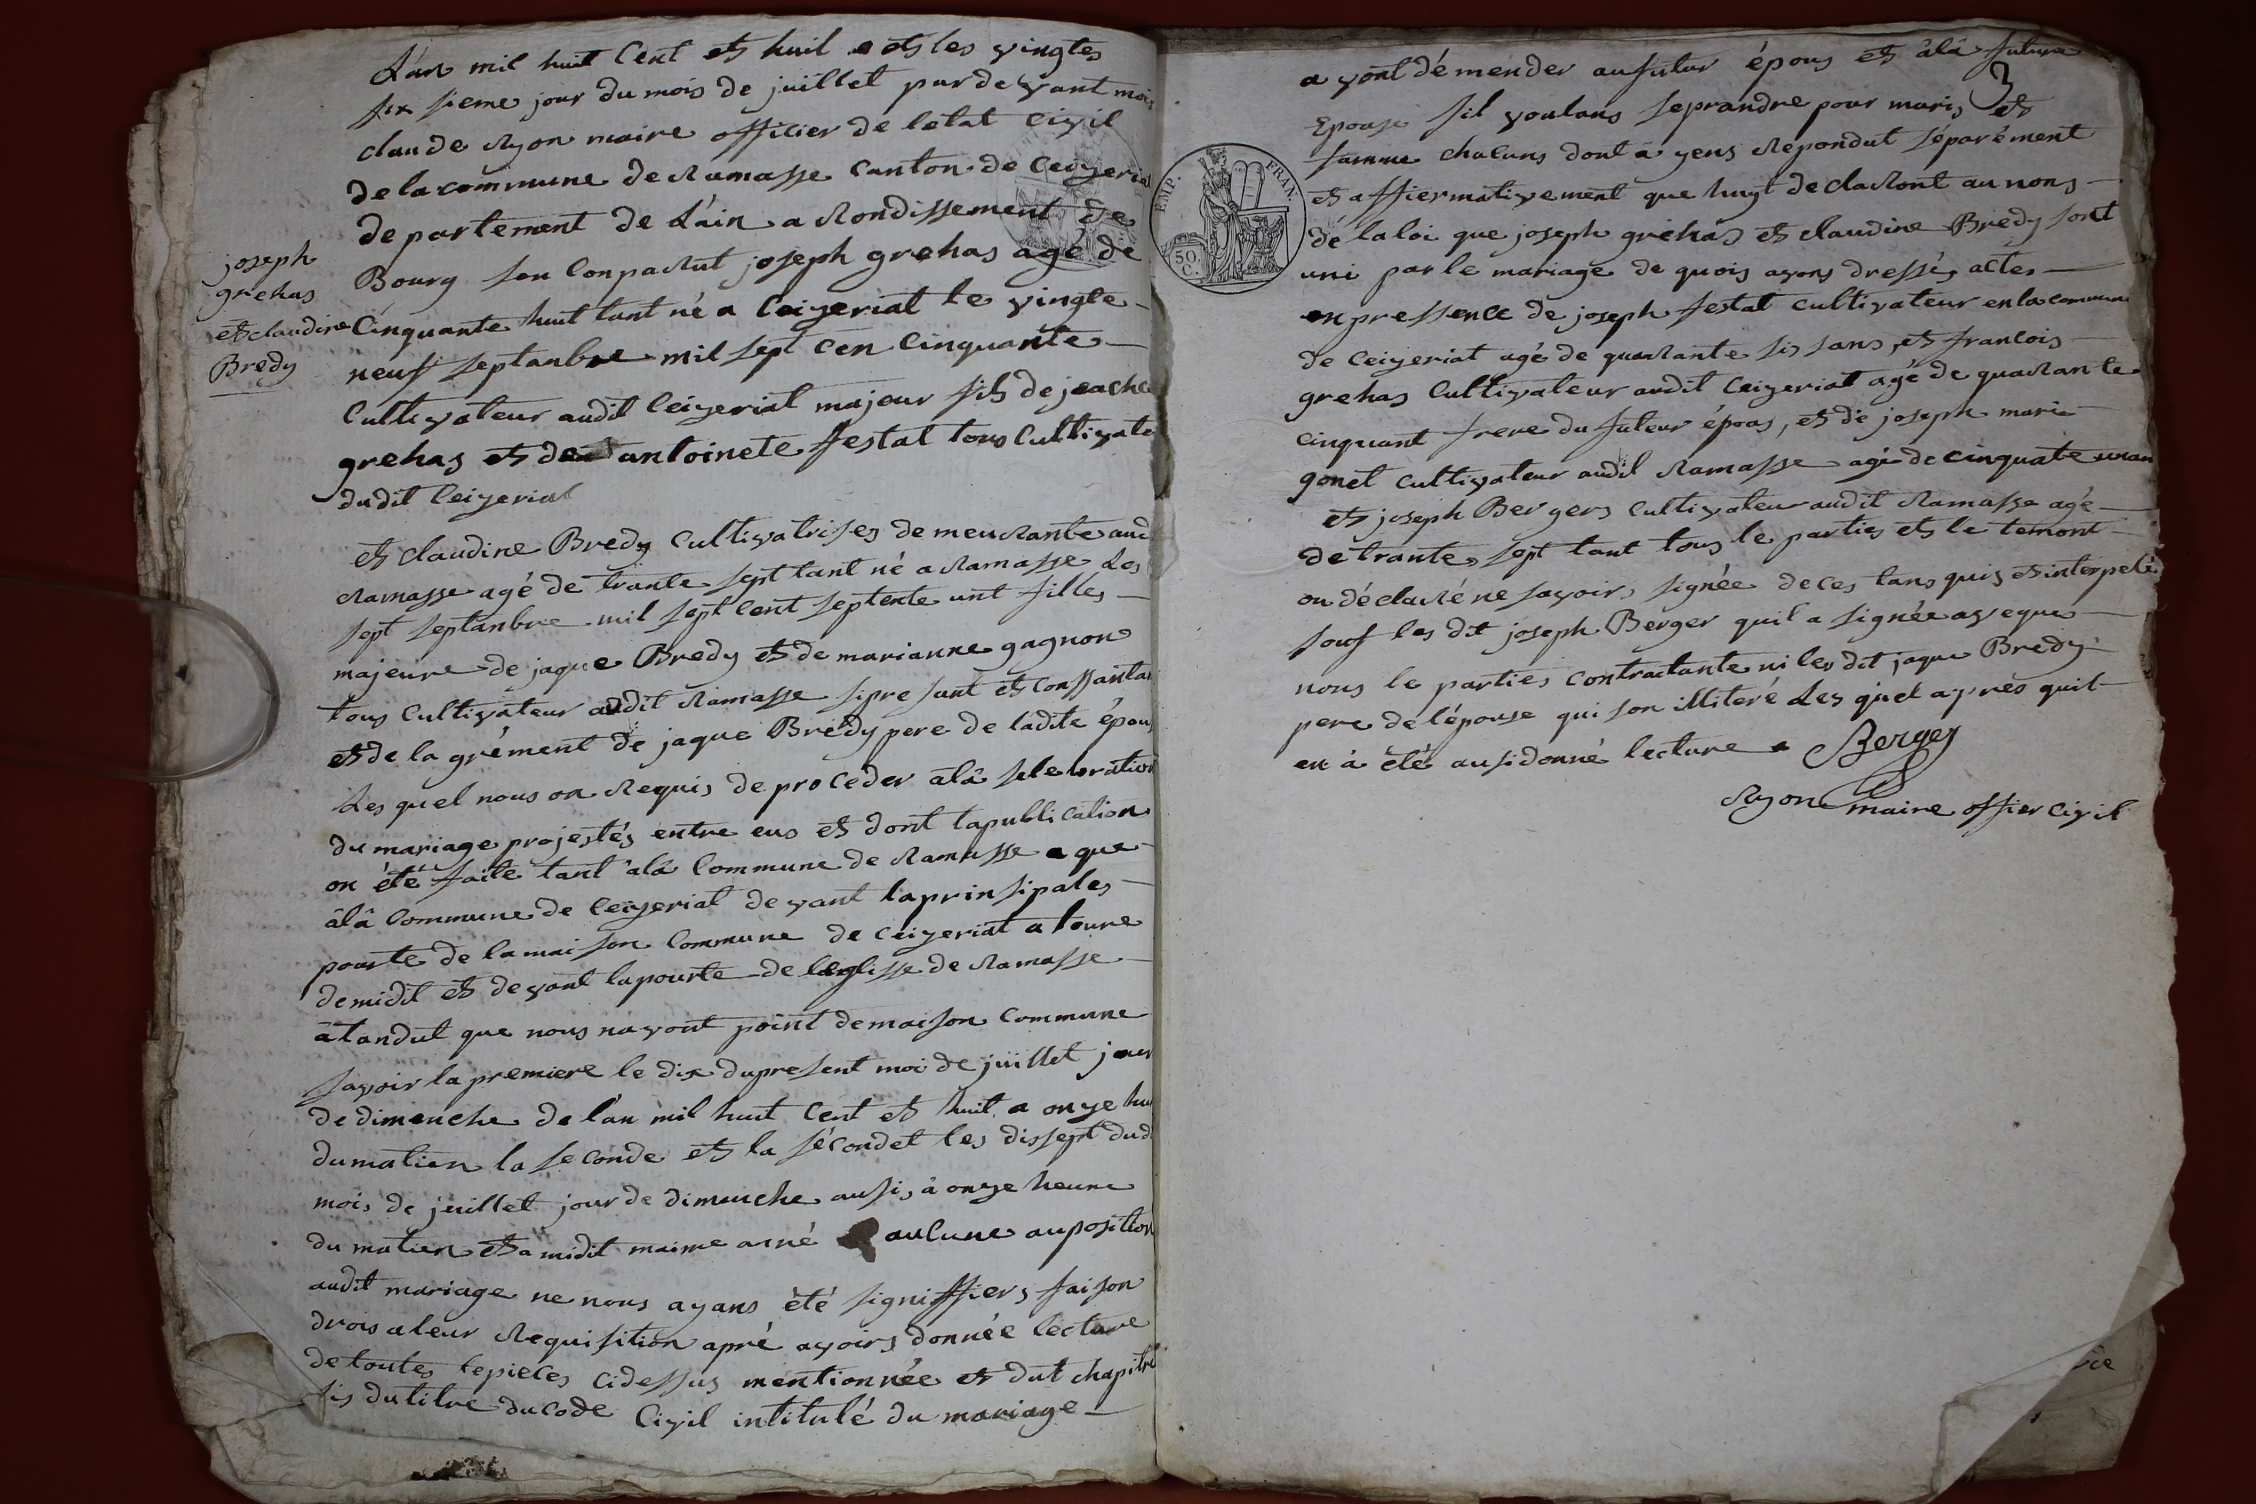 L'an mil huit Cent et huit et les vingtes
six sieme jour du mois de juillet par devant mois
claude Ryon maire officier de letat civil
de la commune de Ramasse canton de Ceizeriat
departement de L'ain a Rondissement de
Bourg son Conparut joseph grehas agé de
joseph
grehas
et claudine
Bredy
Cinquante huit tant né a Ceizeriat le vingte
neuf septanbre mil sept cen Cinquante
Cultivateur audit Ceizeriat majeur fils de joache
grehas et de antoinete festat tous Cultivate
dudit Ceizeriat
et claudine Bredy Cultivatrises de meurante aud
Ramasse agé de trante sept tant né a Ramasse Les
sept septanbre mil sept Cent septente unt filles
majeure de jaque Bredy et de marianne gagnon
tous Cultivateur audit Ramasse si pre sant et Conssantan
et de la grément de jaque Brédy pere de ladite épous
Les quel nous on Requis de proceder âlâ sele bration
du mariage projestés entre eus et dont la publication
on été faite tant âlâ Commune de Ramasse a que
âlâ Commune de Ceizeriat devant la prinsipales
pourte de la mai son Commune de Ceizeriat a loure
de midit et devant la pourte de leglisse de Ramasse
âtandut que nous navont point de maison Commune
savoir la premiere le dix du present moi de juillet jour
de dimenche de l'an mil huit Cent et huit a onze hu
du matien la seconde et la sécondet les dissept dud
mois de juillet jour de dimenche ausis à onze heure
du matien et a midit maime arné aucune auposition
audit mariage ne nous ayans été signiffiers faison
drois a leur Requisition apré avoirs donnée lecture
de toutes le pieces cidessus mentionnée et dut chapitre
sis du titre du code Civil intitulé du mariage
a vont démender au futur épous et âlâ future
3
Epouse sil voulans seprandre pour maris et
famme chacuns dont a yens Repondut séparément
et affiermativement que huyt declaront au nons
dé la loi que joseph gréhas et claudine Brédy sont
uni par le mariage de quois avons dressés actes
EMP. FRAN.
50 C.
en pressence de joseph festat cultivateur en la commune
de Ceizeriat agé de quarante sis sans, et francois
grehas Cultivateur audit Ceizeriat agé de quarante
cinquant frere du futeur épous, et de joseph marie
gonet cultivateur audit Ramasse agé de cinquate unan
et joseph Bergers Cultivateur audit Ramasse agé
de trante sept tant tous le parties et le temont
on déclaré ne savoirs signée de ces tans quis et interpelé
souf les dit joseph Berger quil a signée aveque
nous le parties contractante ni les dit jaque Bredy
pere de l'épouse qui son illiteré Les quel aprés quil
en à été ausi donné lecture Berger
Ryon maire offier civil